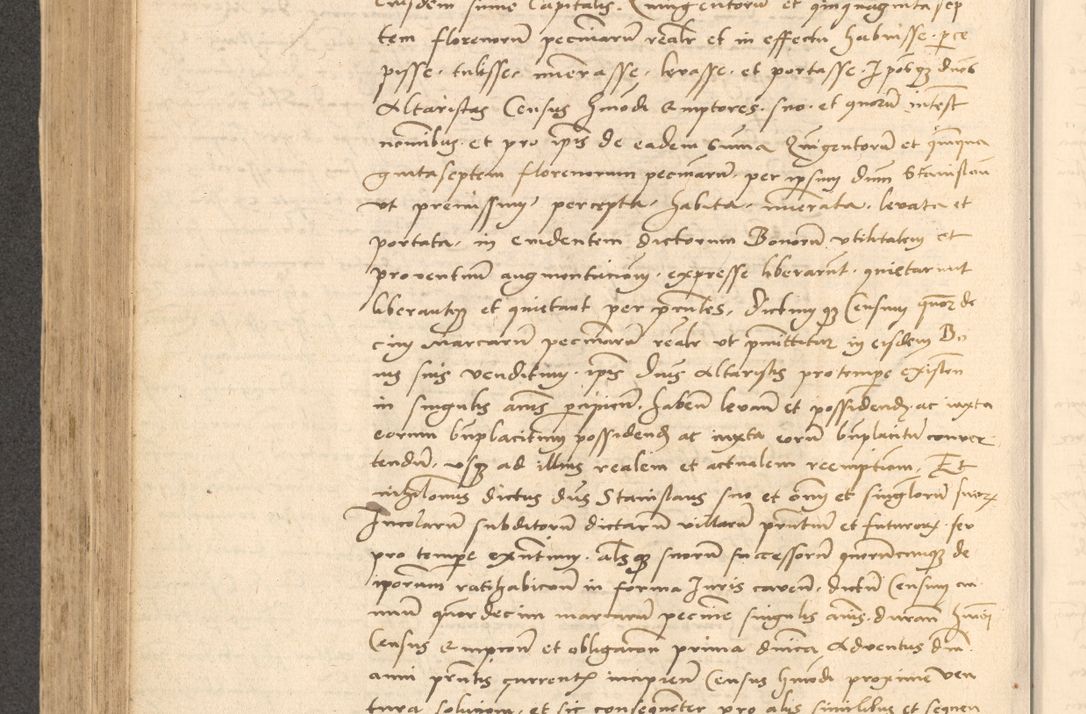 Eiusdem sume Capitalis. Quingentorũ et quinquaginta sep
tem florenorum pecuniarũ realr et in effectu habuisse. perce
pisse. tulisse. numerasse. levasse. et portasse. Ipõsqʒ dnos
Altaristas Census hmõdi Emptores. suo. et quorũ interest
nomĩbus. et pro ipis de eadem Suma Quigentorũ et quinqua
gintaseptem florenorum pecuniarũ. per ipsum dnm Stanislau
ut premissum percepta. habita. numerata. levata et
portata. in evidentem dictorum Bonorũ utilitatem et
proventuum augmentacionem. expresse liberarunt. quietarunt
liberantqʒ et quietant per pñtes. Dictumqʒ Censum quor de
cim Marcarũ pecuniarũ realr ut pmittitur in eisdem Bo
nis suis venditum. ipis Dnis Altaristis pro tempe existen
in singulis anis percipien. haben levan et possidend. ac iuxta
eorum bñplacitum possidend ac iuxta eorũ bñplacitũ conver
tendũ. usqʒ ad illius realem et actualem reemption. Et
nihilomus dictus dns Stanislaus suo et oim et singlorũ suorʒ
Incolarũ subditorũ dictarũ villarũ pñtium et futurorʒ. seu
pro tempe exñtium. alsqʒ suorũ successorũ quorumcunqʒ de
quorum ratihabicion in forma Iuris caven. dictũ Censum an
nuũ quordecim marcarũ pecunie singulis anis. duran hmõi
Census Empcion et obligacion prima dnica Adventus dni
anni pñtis currentʒ incipien Census hmõdi proxime ven
tura solucion. et sic consequeter pro aliis similibus et sequen